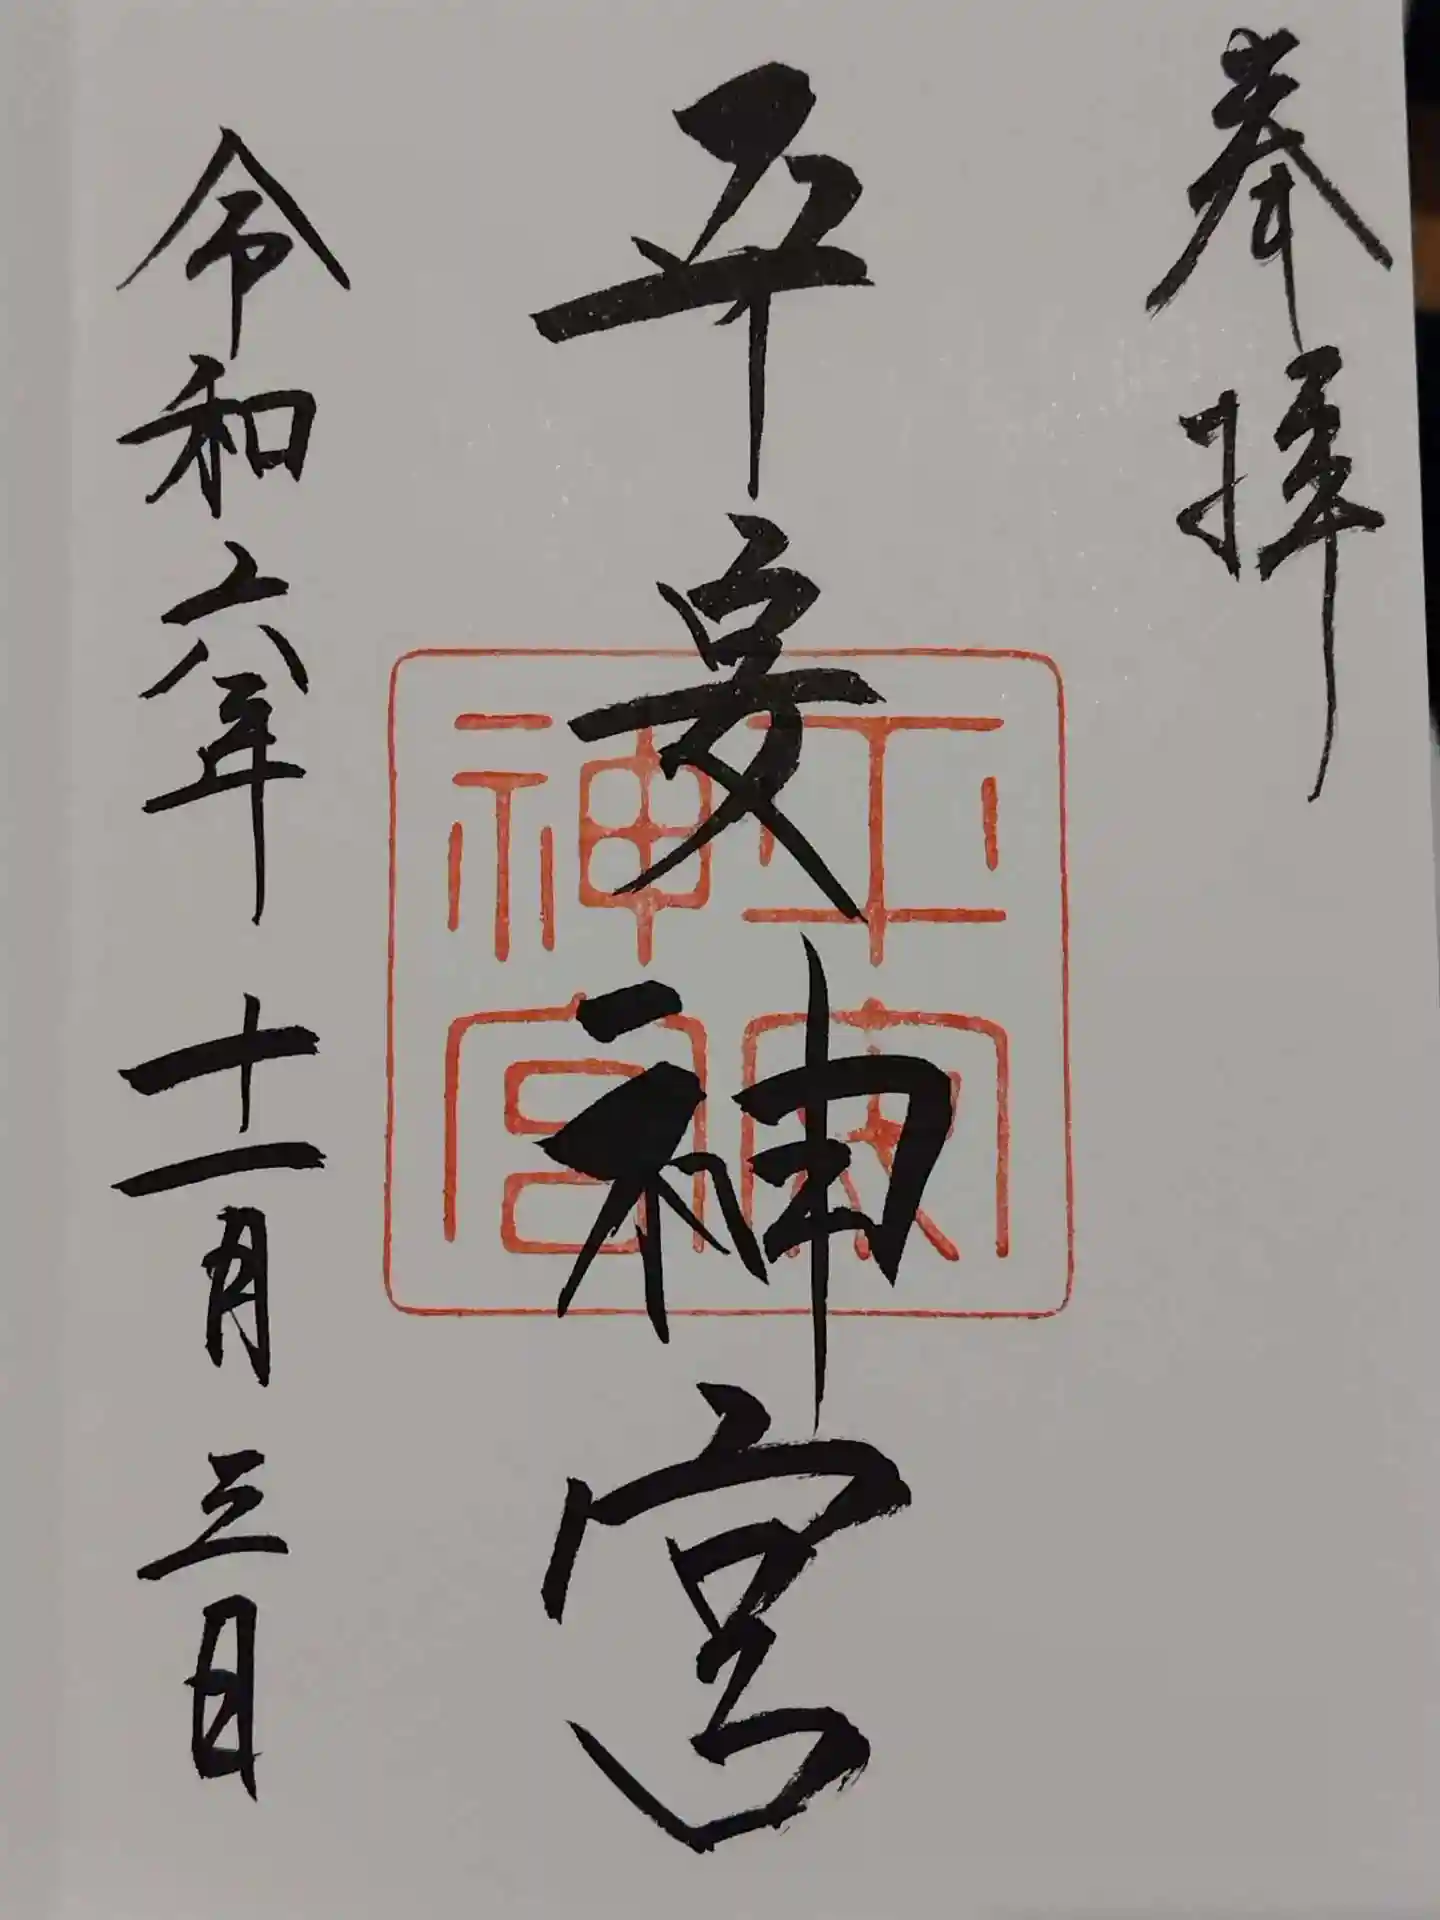 奉拝
平安神宮
令和六年十一月三日
平安神宮